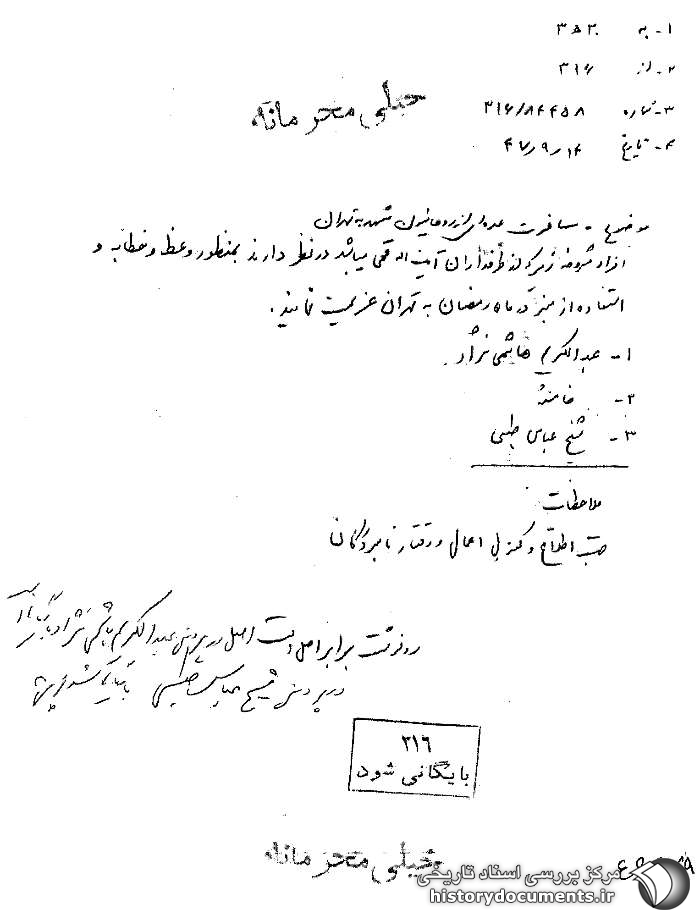 ۱- به ۳۵۲
۲- از ۳۱۶
۳- شماره ۳۱۶/۸۴۴۵۸
۴- تاریخ ۴۷/۹/۱۴
خیلی محرمانه
موضوع - مسافرت عده‌ای از روحانیون مشهد به تهران
افراد مشروحه زیر که از طرفداران آیت اله قمی میباشد در نظر دارند بمنظور وعظ و خطابه و
استفاده از منبر در ماه رمضان به تهران عزیمت نمایند.
۱- عبدالکریم هاشمی نژاد
۲- خامنه
۳- شیخ عباس طبسی
ملاحظات
جهت اطلاع و کنترل اعمال و رفتار نامبردگان
رونوشت برابر اصل است اصل در پرونده عبدالکریم هاشمی نژاد
در پرونده شیخ عباس طبسی بایگانی شود
۳۱۶
بایگانی شود
خیلی محرمانه
مرکز بررسی اسناد تاریخی
historydocuments.ir